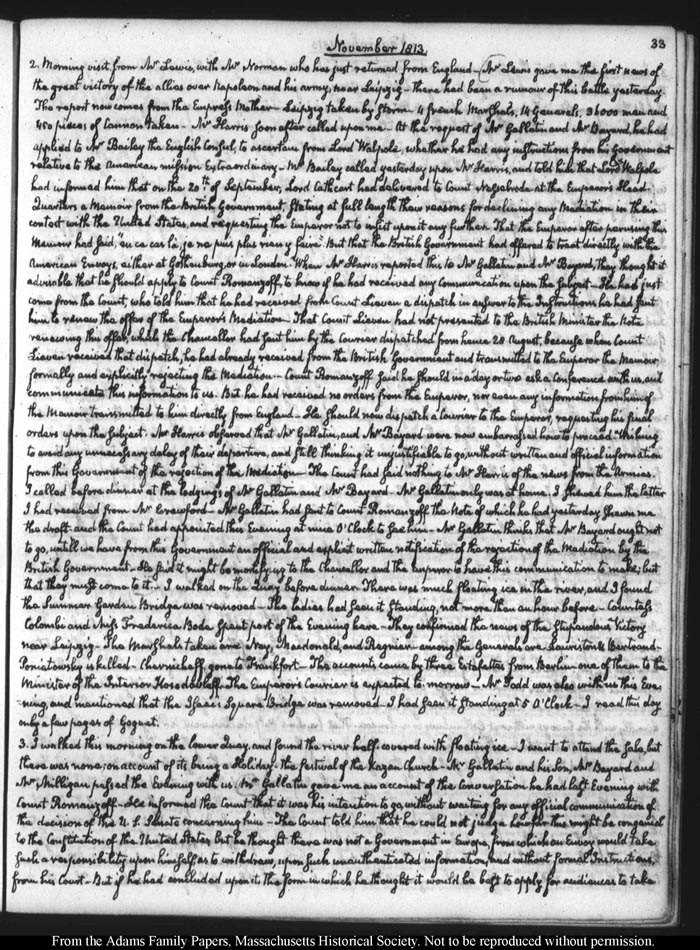 November 1813.
33
2. Morning visit from Mr Lewis, with Mr Norman who has just returned from England — Mr Lewis gave me the first news of
the great victory of the allies over Napoleon and his army, near Leipzig — there had been a rumour of this battle yesterday
The report now comes from the Empress Mother — Leipzig taken by Storm — 4 french Marshals, 14 Generals, 36000 men and
450 pieces of Cannon taken — Mr Harris soon after called upon me — At the request of Mr Gallatin and Mr Bayard, he had
applied to Mr Bailey the English Consul, to ascertain from Lord Walpole, whether he had any instructions from his Government
relative to the American mission Extraordinary — Mr Bailey called yesterday upon Mr Harris, and told him that Lord Walpole
had informed him that on the 20th of September, Lord Cathcart had delivered to Count Nesselrode at the Emperor's Head-
Quarters a Memoir from the British Government, stating at full length their reasons for declining any Mediation in their
contest with the United States, and requesting the Emperor not to insist upon it any further. That the Emperor after perusing this
Memoir had said, "en ce cas là, je ne puis plus rien y faire" But that the British Government had offered to treat directly with the
American Envoys, either at Gothenburg, or in London. When Mr Harris reported this to Mr Gallatin and Mr Bayard, they thought it
advisable that he should apply to Count Romanzoff, to know if he had received any Communication upon the subject — He had just
come from the Count, who told him that he had received from Count Lieven a dispatch in answer to the Instructions he had sent
him to renew the offer of the Emperor's Mediation — That Count Lieven had not presented to the British Minister the Note
renewing this offer, which the Chancellor had sent him by the Courier dispatched from hence 28 August, because when Count
Lieven received that dispatch, he had already received from the British Government and transmitted to the Emperor the Memoir,
formally and explicitly rejecting the Mediation — Count Romanzoff said he should in a day or two ask a Conference with us, and
communicate this information to us. But he had received no orders from the Emperor, nor even any information from him of
the Memoir transmitted to him directly from England — He should now dispatch a Courier to the Emperor, requesting his final
orders upon the subject. Mr Harris observed that Mr Gallatin, and Mr Bayard were now embarrassed how to proceed — Wishing
to avoid any unnecessary delay of their departure, and still thinking it unjustifiable to go, without written and official information
from this Government of the rejection of the Mediation — The Count had said nothing to Mr Harris of the news from the Armies.
I called before dinner at the lodgings of Mr Gallatin and Mr Bayard — Mr Gallatin only was at home. I shewed him the letter
I had received from Mr Crawford — Mr Gallatin had sent to Count Romanzoff the Note of which he had yesterday shewn me
the draft — and the Count had appointed this Evening at nine O'Clock to see him — Mr Gallatin thinks that Mr Bayard ought not
to go, untill we have from this Government an official and explicit written notification of the rejection of the Mediation by the
British Government — He said it might be mortifying to the Chancellor and the Emperor to have this communication to make; but
that they must come to it — I walked on the Quay before dinner. There was much floating ice in the river, and I found
the Summer Garden Bridge was removed — The ladies had seen it standing, not more than an hour before — Countess
Colombi and Miss Frederica Bode spent part of the Evening here — They confirmed the news of the stupendous Victory
near Leipzig — The Marshals taken are Ney, Macdonald, and Regnier — among the Generals are Lauriston & Bertrand —
Poniatowsky is killed — Chernicheff, gone to Frankfort — The accounts came by three Estafettes from Berlin — one of them to the
Minister of the Interior Kosodavloff. The Emperor's Courier is expected to-morrow — Mr Todd was also with us this Eve-
ning, and mentioned that the Isaac Square Bridge was removed — I had seen it standing at 5 O'Clock — I read this day
only a few pages of Goguet.
3. I walked this morning on the lower Quay, and found the river half-covered with floating ice — I went to attend the sale, but
there was none; on account of its being a Holiday — the festival of the Kazan Church — Mr Gallatin and his Son, Mr Bayard and
Mr Milligan passed the Evening with us. Mr Gallatin gave me an account of the Conversation he had last Evening with
Count Romanzoff — He informed the Count that it was his intention to go, without waiting for any official communication of
the decision of the U. S. Senate concerning him — The Count told him that he could not judge how far this might be congenial
to the Constitution of the United States, but he thought there was not a Government in Europe, from which an Envoy would take
such a responsibility upon himself as to withdraw, upon such unauthenticated information, and without formal Instructions,
from his Court — But if he had concluded upon it, the form in which he thought it would be best to apply for audiences to take
From the Adams Family Papers, Massachusetts Historical Society. Not to be reproduced without permission.